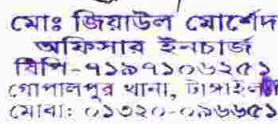 মোঃ জিয়াউল মোর্শেদ
অফিসার ইনচার্জ
বিপি-৭১৯৭১০৬২৫১
গোপালপুর থানা, টাঙ্গাইল
মোবা: ০১৩২০-০৯৬৬৫১